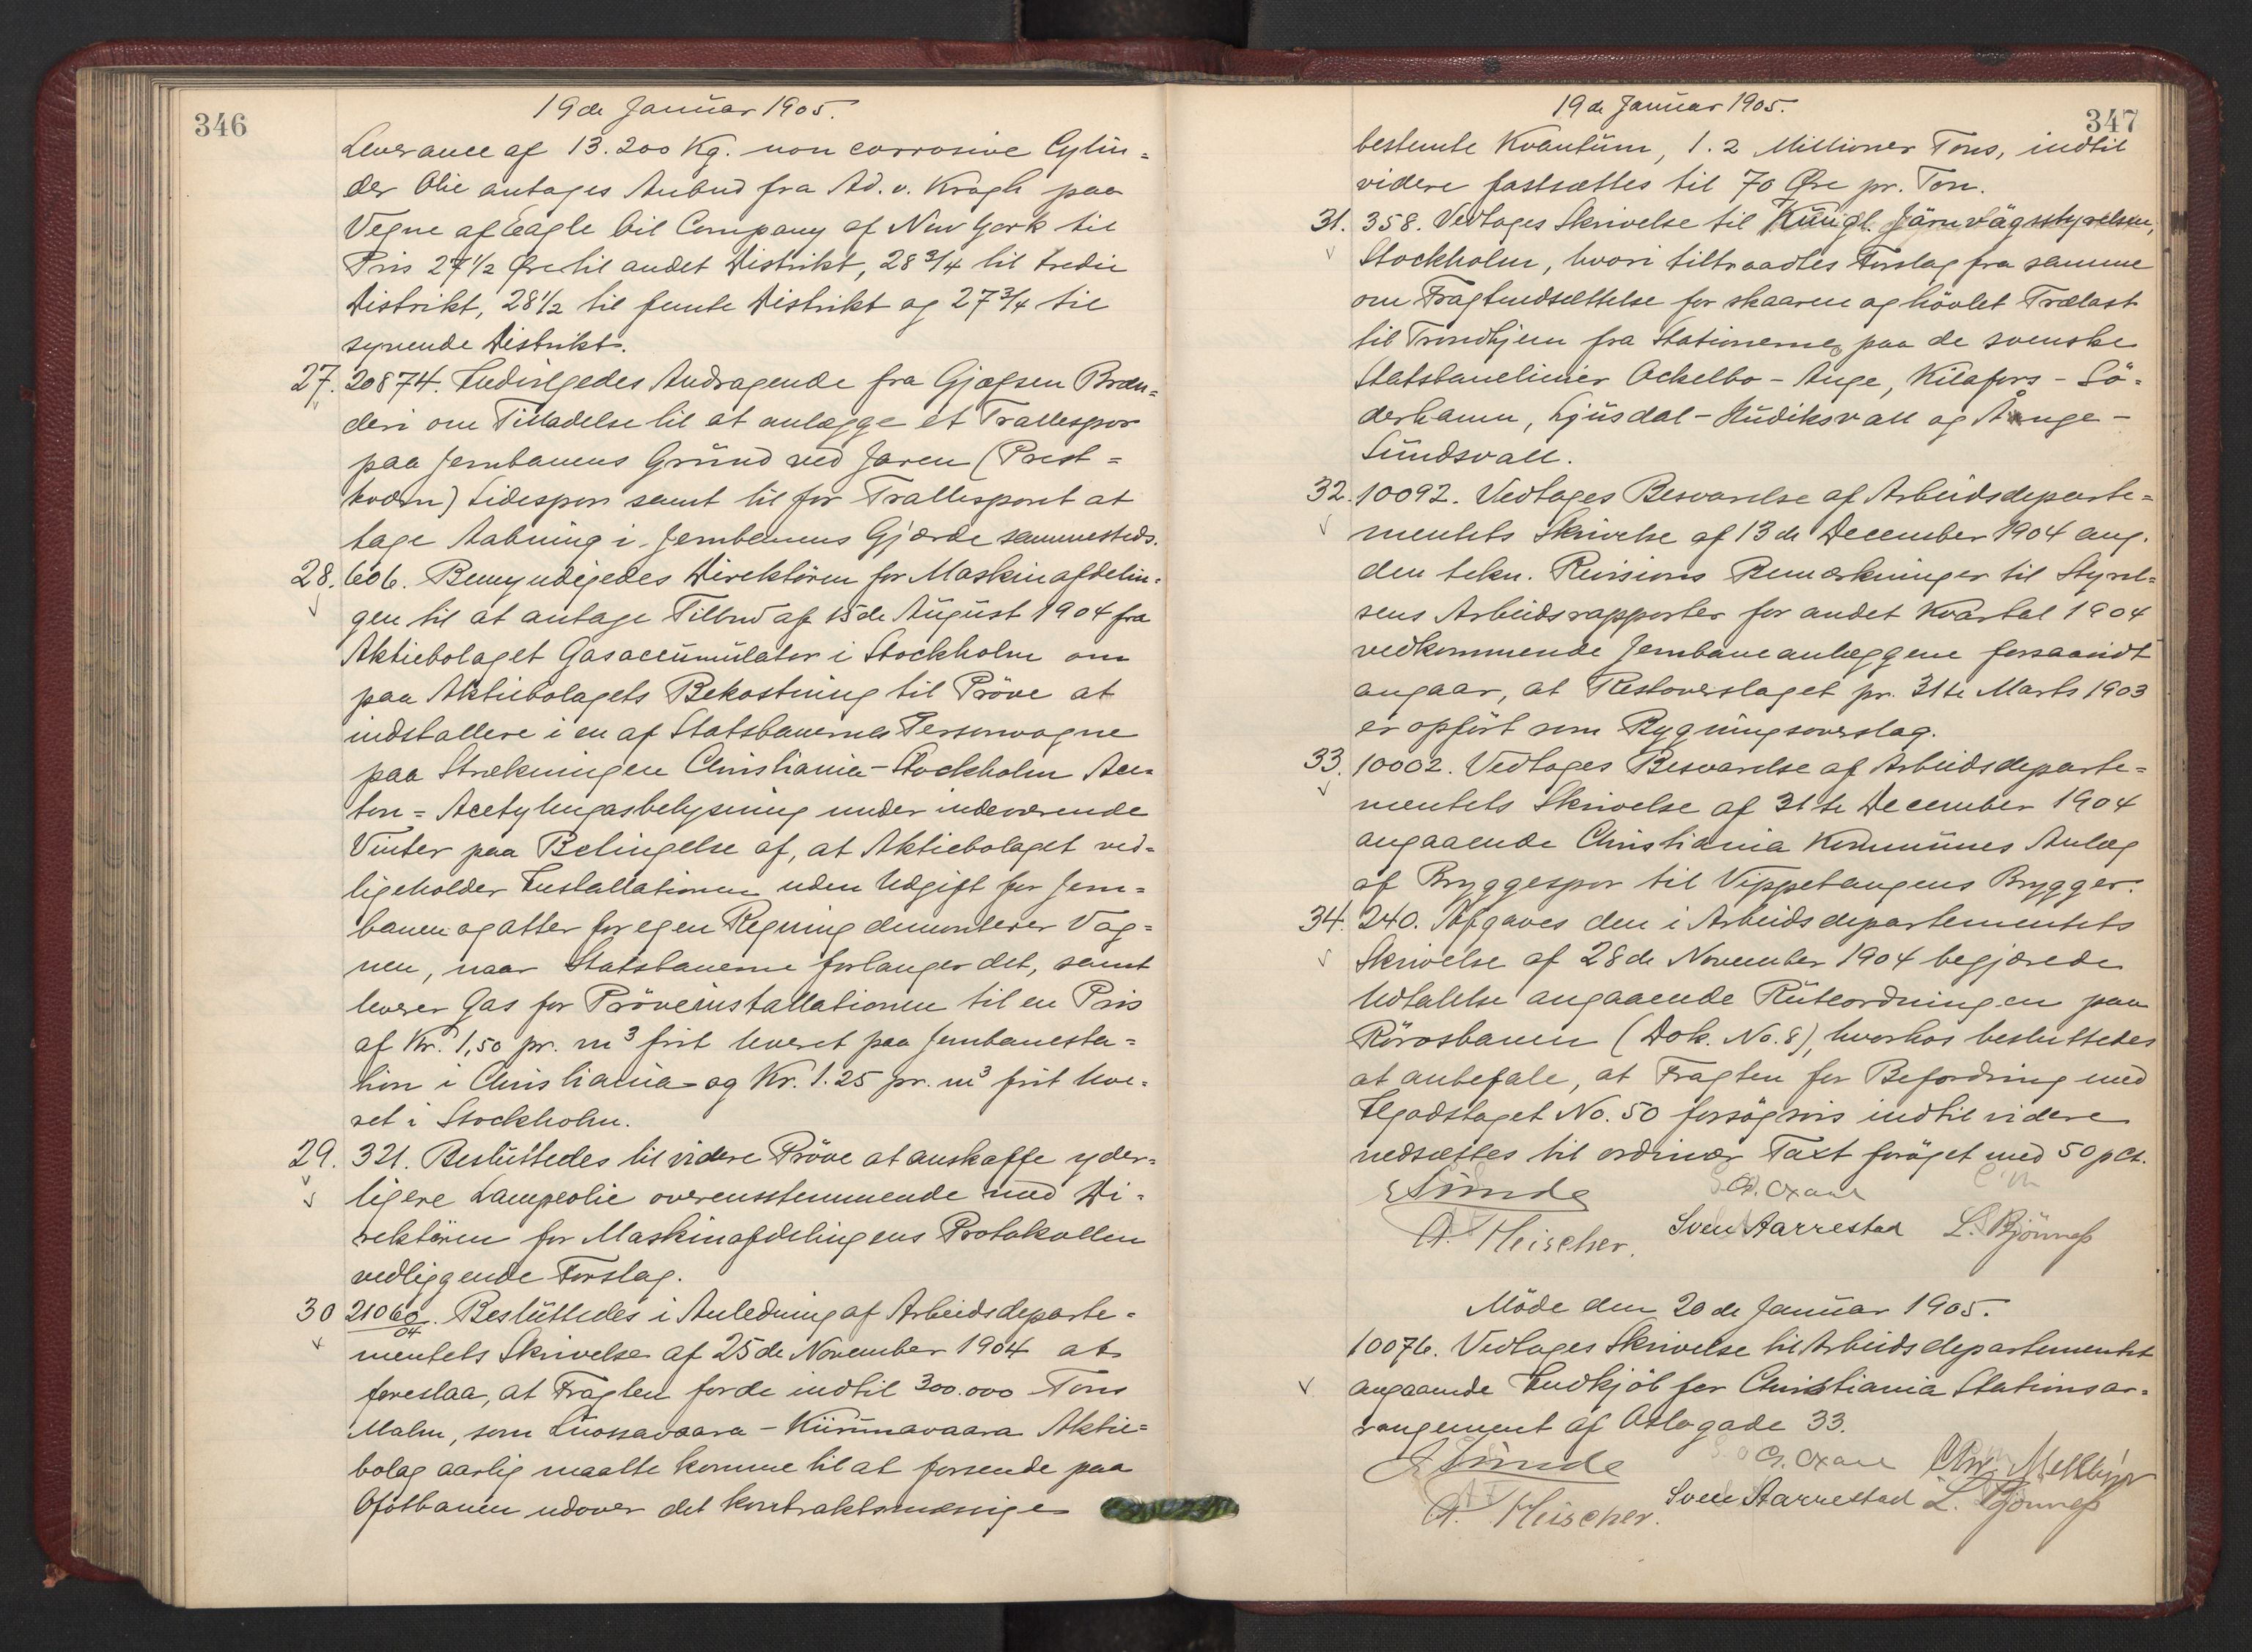 346
19de Januar 1905.
Leverance af 13.200 Kg. non corrosive Cylin=
der Olie antages Anbud fra Ad. v. Krogh paa
Vegne af Eagle Oil Company of New York til
Pris 27 1/2 Øre til andet Distrikt, 28 3/4 til tredie
Distrikt, 28 1/2 til femte Distrikt og 27 3/4 til
syvende Distrikt.
27. 20874. Indvilgedes Andragende fra Gjøfsen Bræn=
deri om Tilladelse til at anlægge et Trallespor
paa Jernbanens Grund ved Jaren (Prest=
kværn) Sidespor samt til for Trallesporet at
tage Aabning i Jernbanens Gjærde sammesteds.
28. 606. Bemyndigedes Direktören for Maskinafdelin=
gen til at antage Tilbud af 15de August 1904 fra
Aktiebolaget Gasaccumulator i Stockholm om
paa Aktiebolagets Bekostning til Pröve at
indstallere i en af Statsbanernes Personvogne
paa Strækningen Christiania-Stockholm Ace=
ton=Acetylengasbelysning under indeværende
Vinter paa Betingelse af, at Aktiebolaget ved=
ligeholder Installationen uden Udgift for Jern=
banen og atter for egen Regning demonterer Vog=
nen, naar Statsbanerne forlanger det, samt
leverer Gas for Pröveinstallationen til en Pris
af Kr. 1,50 pr. m3 frit leveret paa Jernbanesta=
tion i Christiania og Kr. 1.25 pr. m3 frit leve=
ret i Stockholm.
29. 321. Besluttedes til videre Pröve at anskaffe yder=
ligere Lampeolie overensstemmende med Di=
rektören for Maskinafdelingens Protokollen
vedliggende Forslag.
30 21060/04. Besluttedes i Anledning af Arbeidsdeparte=
mentets Skrivelse af 25de November 1904 at
foreslaa, at Fragten for de indtil 300.000 Tons
Malm, som Luossavaara-Kiirunavaara Aktie=
bolag aarlig maatte komme til at forsende paa
Ofotbanen udover det kontraktsmæssige
347
19de Januar 1905.
bestemte Kvantum, 1.2 Millioner Tons, indtil
videre fastsættes til 70 Øre pr. Ton.
31. 358. Vedtoges Skrivelse til Kungl. Järnvägsstyrelsen,
Stockholm, hvori tiltraadtes Forslag fra samme
om Fragtnedsættelse for skaaren og hövlet Trælast
til Trondhjem fra Stationerne paa de svenske
Statsbanelinier Ockelbo-Ånge, Kilafors-Sö=
derhamn, Ljusdal-Hudiksvall og Ånge-
Sundsvall.
32. 10092. Vedtoges Besvarelse af Arbeidsdeparte=
mentets Skrivelse af 13de December 1904 ang.
den tekn. Revisions Bemærkninger til Styrel=
sens Arbeidsrapporter for andet Kvartal 1904
vedkommende Jernbaneanlæggene forsaavidt
angaar, at Restoverslaget pr. 31te Marts 1903
er opfört som Bygningsoverslag.
33. 10002. Vedtoges Besvarelse af Arbeidsdeparte=
mentets Skrivelse af 31te December 1904
angaaende Christiania Kommunes Anlæg
af Bryggespor til Vippetangens Brygger.
34. 240. Afgaves den i Arbeidsdepartementets
Skrivelse af 28de November 1904 begjærede
Udtalelse angaaende Ruteordningen paa
Rörosbanen (Dok. No. 8), hvorhos besluttedes
at anbefale, at Fragten for Befordring med
Ilgodstoget No. 50 forsögsvis indtil videre
nedsættes til ordinær Taxt foröget med 50 pCt.
E Sunde G. Oxaal
A. Fleischer. Sven Aarrestad L. Björness
Möde den 20de Januar 1905.
10076. Vedtoges Skrivelse til Arbeidsdepartementet
angaaende Indkjöb for Christiania Stationsar=
rangement af Oslogade 33.
E Sunde G. Oxaal Chr. Mellbye
A. Fleischer. Sven Aarrestad L. Björness